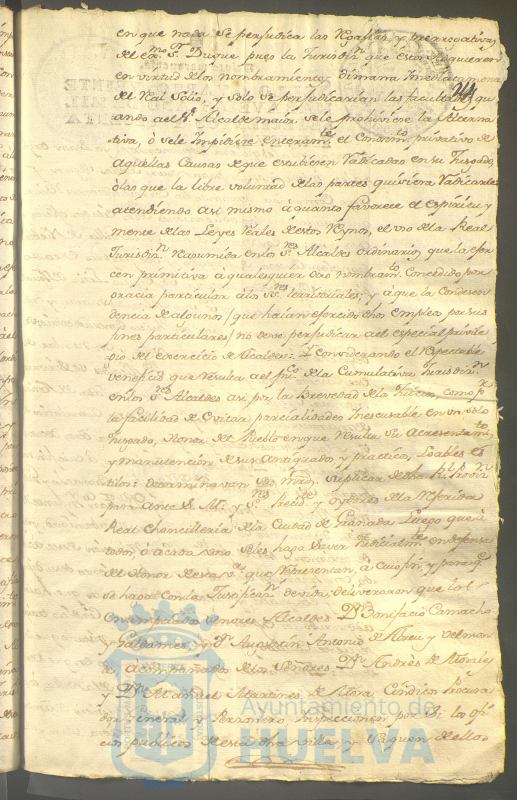 en que nada se perjudica las Regalias, y prerrogativas
del ex.mo S.r Duque pues la Jurisdi.n que estos adquieren
en virtud de los nombramientos dimana inmediatam.te
del Real Solio, y solo se perjudicarian las facultades qu
ando al S.r Alcalde maior, se le prohiviese la Alterna
tiva, ò se le Impidiese enteram.te el Conocim.to privativo de
aquellas Causas de que estuviere radicadas en su Jusgado,
ò las que la libre voluntad de las partes quisiera radicarle
atendiendo asi mismo à quanto favorece el espiritu, y
mente de las Leyes Reales de estos Reynos, el uso de la Real
Jurisdi.n reasumida en los S.res Alcaldes ordinarios, que la eger
cen primitiva à qualesquier otro nombram.to Concedido por
gracia particular à los S.res territoriales; y à que la Condesen
dencia de algunos (que haian egercido dhos empleos por sus
fines particulares) no deve perjudicar à el especial privile
gio del exercicio de Alcaldes: Y considerando el respetable
veneficio que resulta al p.co de la Cumulativa Jurisdi.n
en los S.res Alcaldes asi por la Brevedad de la Justicia, como p.r
la facilidad de evitar parcialidades Inescusable en un solo
Jusgado, honor del Pueblo en que resulta su Acresentam.to
y manutencion de sus Antiguados, y practicos, Loables es
tilos: determinavan sus mrds. suplicar de dha R.l Provi.n
para ante S. M. y S.res Presid.te y Oydores de la referida
Real Chancilleria de la Ciudad de Granada Luego que à
todos, ò à cada uno se les haga saver Judicialm.te en defensa
del honor de esta v.a que representan, à cuio fin, y para q.e
se haga con la Justificaz.n devida: deliveraron que los
enumpciados señores Alcaldes D.n Bonifacio Camacho
y Galdames, y D.n Augustin Antonio de Abreu y Delmon
te Acompañados de los Señores D.n Andrès de
y D.n Manuel Martines de Mora Cindicos Procura
dor general, y Personero Inspeccionen por Si los ofi
cios publicos de esta dha villa y saquen de ellos
Ayuntamiento de
HUELVA